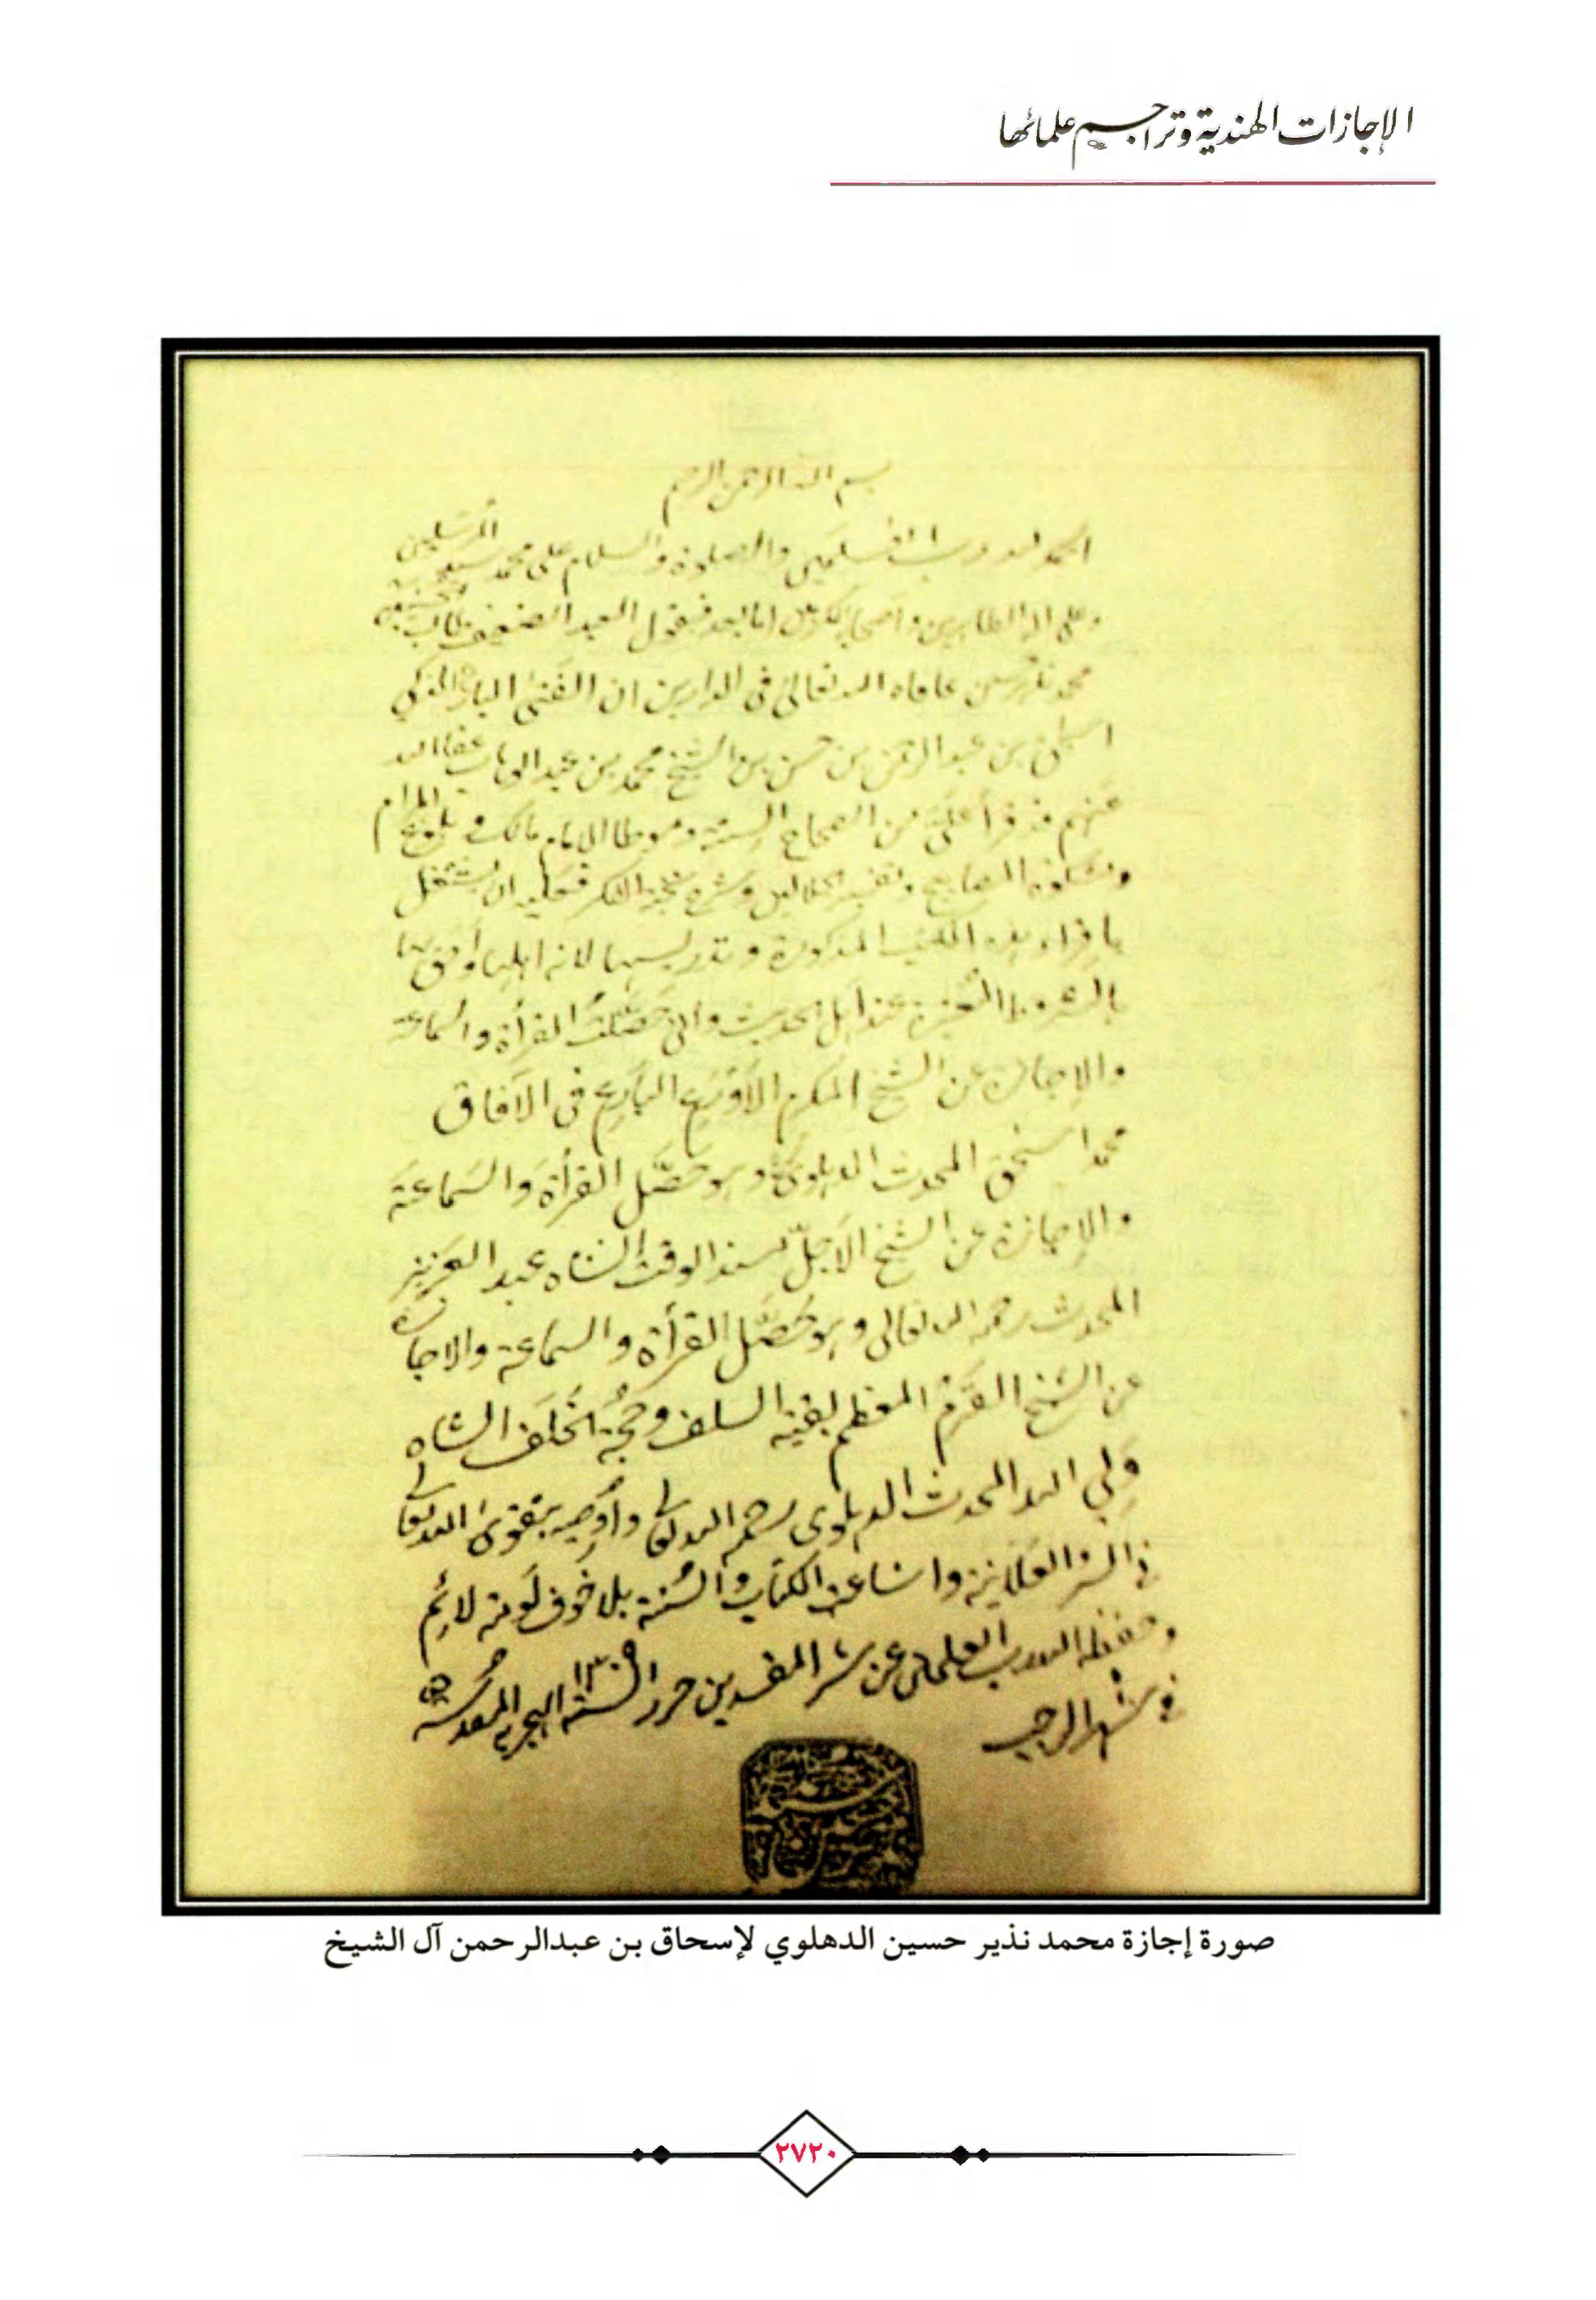 الإجازات الهندية وتراجم علمائها
بسم الله الرحمن الرحيم
الحمد لله رب العلمين والصلوة والسلام على محمد سيد المرسلين
وعلى اله الطاهرين واصحابه اما بعد فيقول العبد الضعيف طالب
محمد نذير حسين عافاه الله تعالى في الدارين ان الفتى البار الذكي
اسحق بن عبد الرحمن بن حسن بن الشيخ محمد بن عبد الوهاب عفا الله
عنهم قد قرأ علي من الصحاح الستة وموطا الامام مالك وبلوغ المرام
ومشكوة المصابيح وتفسير الجلالين وشرح نخبة الفكر فعليه ان يشتغل
باقراء هذه الكتب المذكورة وتدريسها لانه اهلها واحق بها
بالشروط المعتبرة عند اهل الحديث واني حصلت القرأة والسماعة
والإجازة عن الشيخ المكرم الأورع البارع في الآفاق
محمد اسحق المحدث الدهلوي وهو حصّل القرأة والسماعة
والإجازة عن الشيخ الأجلّ مسند الوقت الشاه عبد العزيز
المحدث رحمه الله تعالى وهو حصّل القرأة والسماعة والاجازة
عن الشيخ القرم المعظم بقية السلف وحجة الخلف الشاه
ولي الله المحدث الدهلوي رحمه الله تعالى وأوصيه بتقوى الله تعالى
في السر والعلانية واشاعة الكتاب والسنة بلا خوف لومة لائم
وحفظه الله رب العلمين عن شر المفسدين حرر السنة الهجرية المقدسة
في شهر الرجب
صورة إجازة محمد نذير حسين الدهلوي لإسحاق بن عبدالرحمن آل الشيخ
٢٧٢٠